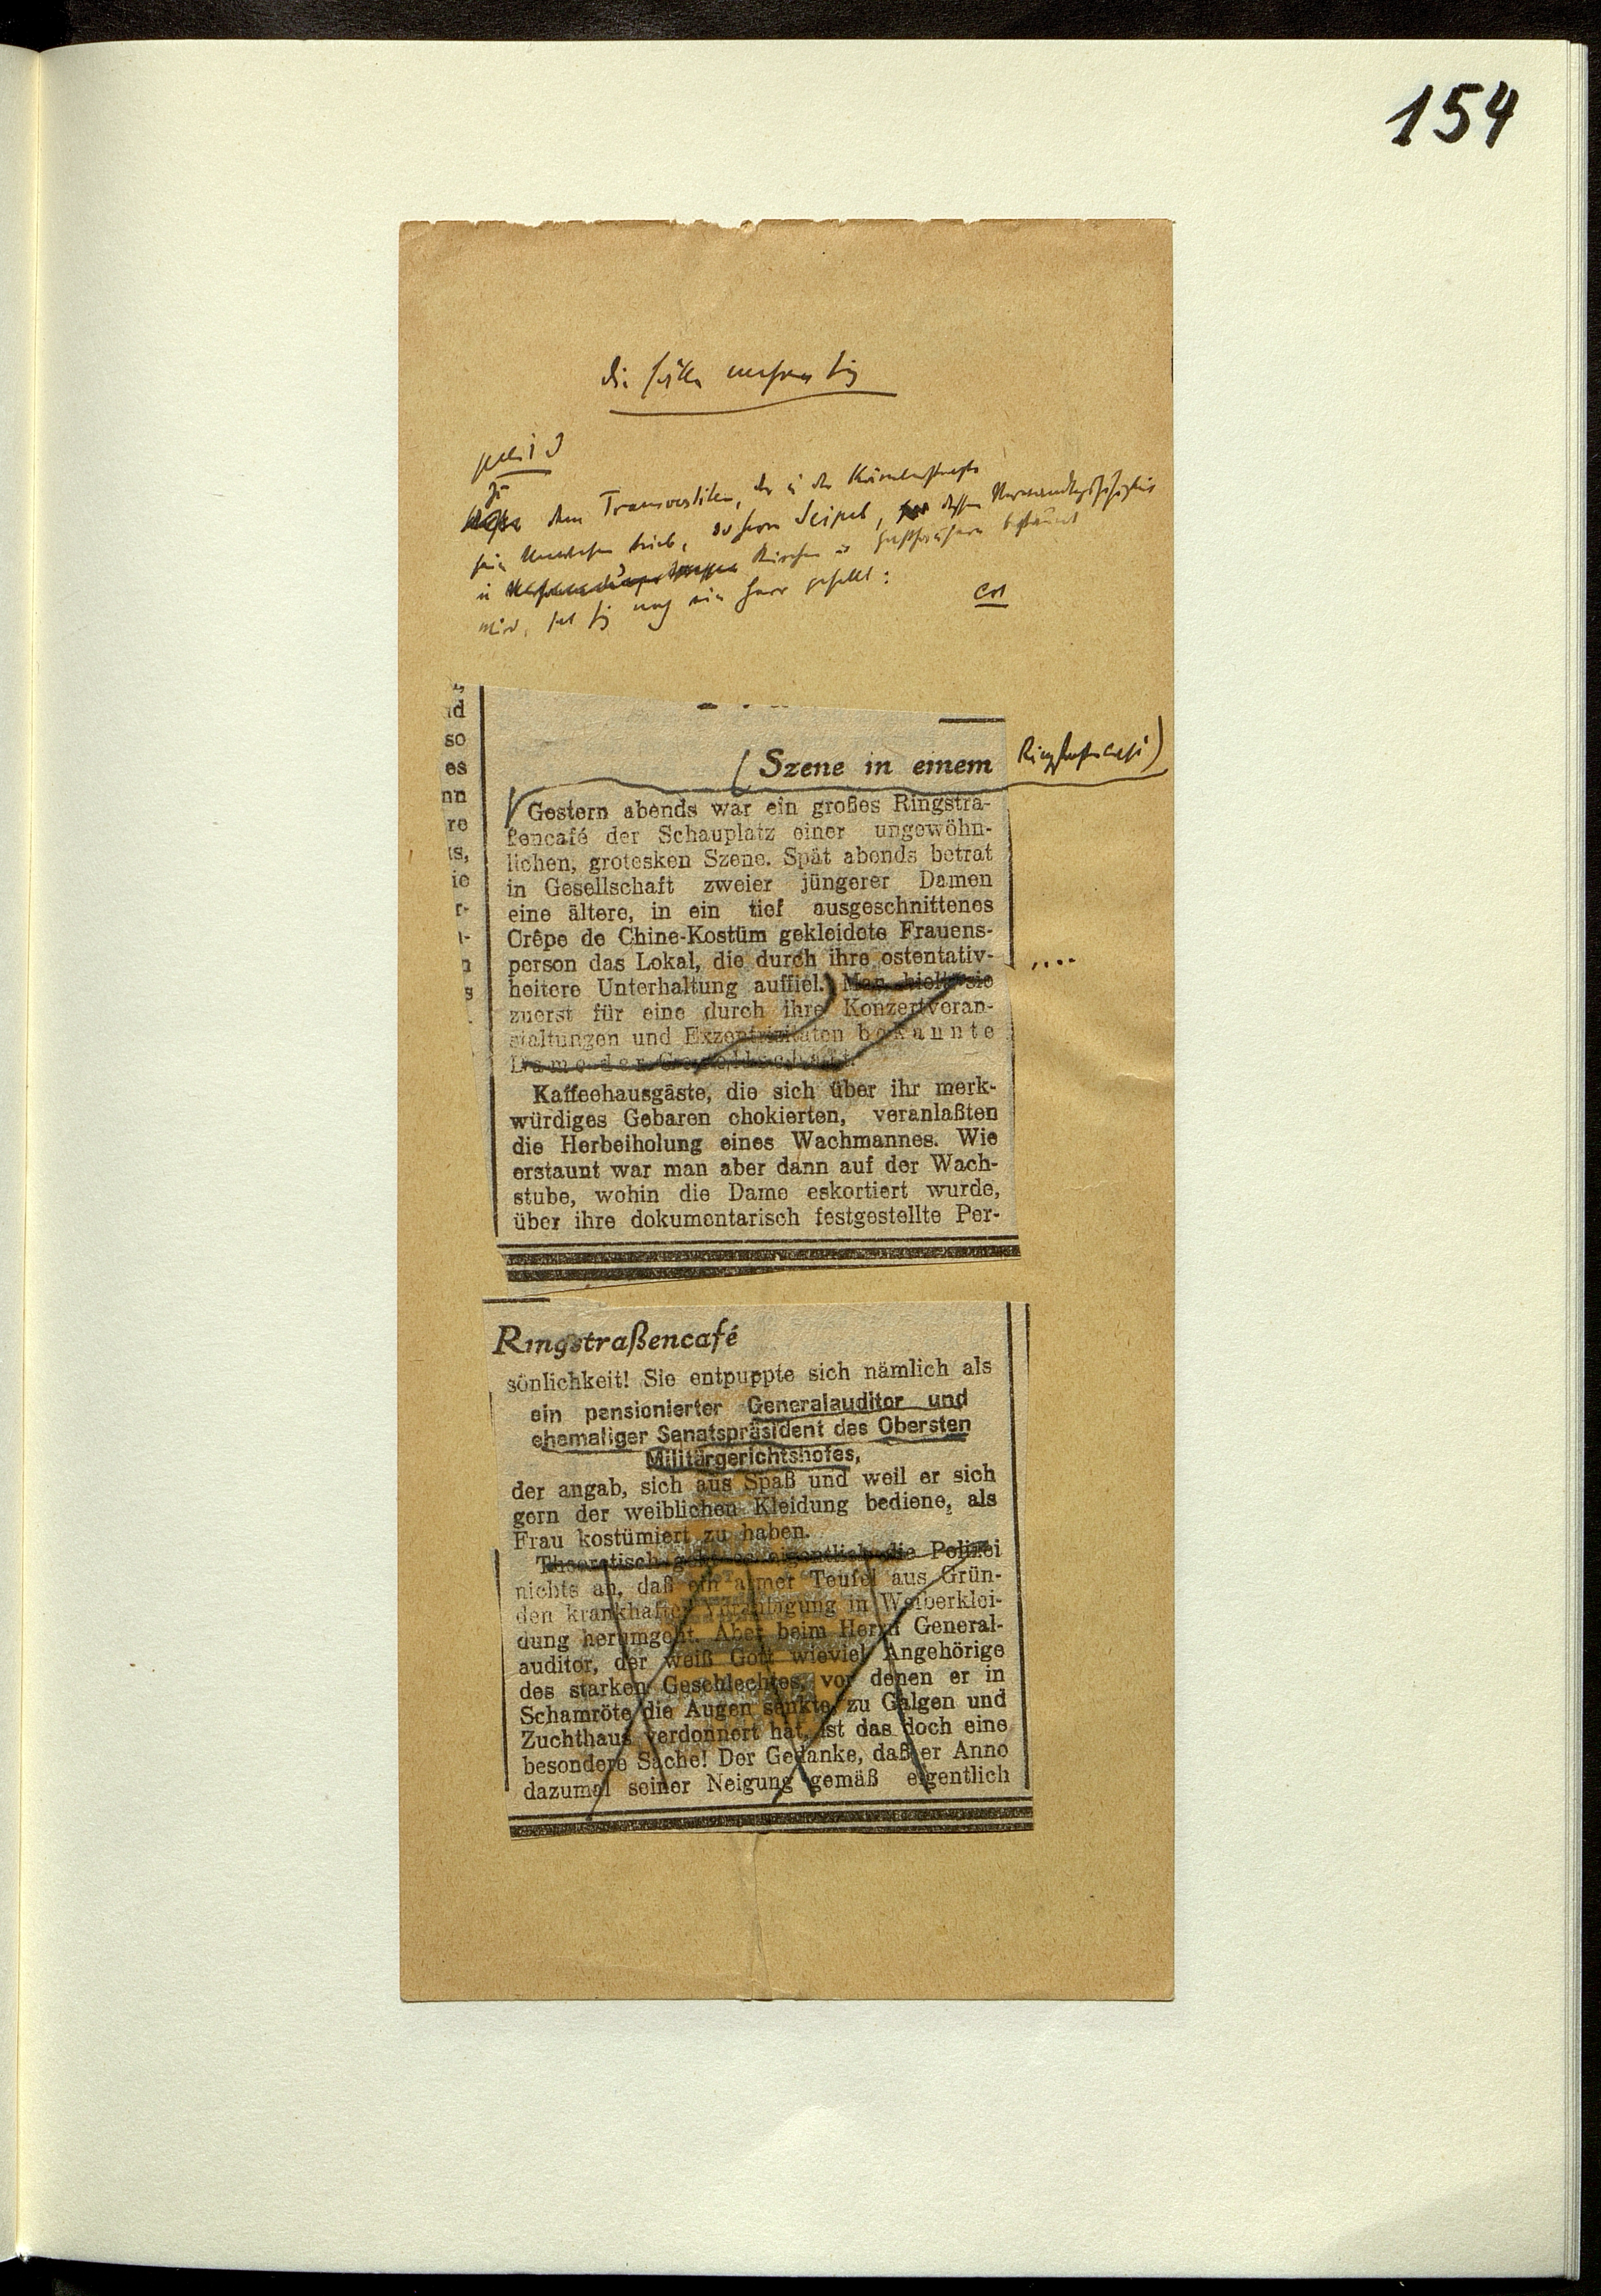 154
Die Fälle mehren sich
Zu
dem Transvestiten, der in der Kärntnerstraße
sein Unwesen trieb, u Herrn Seipel, dessen Verwandlungsfähigkeit
in Kirchen u Gasthäusern bestaunt
wird, hat sich noch ein Herr gesellt:
,
ld
so
es
nn
re
ts,
ie
r-
l-
n
s
(Szene in einem Ringstraßencafé)
Gestern abends war ein großes Ringstra-
ßencafé der Schauplatz einer ungewöhn-
lichen, grotesken Szene. Spät abends betrat
in Gesellschaft zweier jüngerer Damen
eine ältere, in ein tief ausgeschnittenes
Crêpe de Chine-Kostüm gekleidete Frauens-
person das Lokal, die durch ihre ostentativ- ....
heitere Unterhaltung auffiel. Man hielt sie
zuerst für eine durch ihre Konzertveran-
staltungen und Exzentrizitäten bekannte
Dame der Gesellschaft.
Kaffeehausgäste, die sich über ihr merk-
würdiges Gebaren chokierten, veranlaßten
die Herbeiholung eines Wachmannes. Wie
erstaunt war man aber dann auf der Wach-
stube, wohin die Dame eskortiert wurde,
über ihre dokumentarisch festgestellte Per-
Ringstraßencafé
sönlichkeit! Sie entpuppte sich nämlich als
ein pensionierter Generalauditor und
ehemaliger Senatspräsident des Obersten
Militärgerichtshofes,
der angab, sich aus Spaß und weil er sich
gern der weiblichen Kleidung bediene, als
Frau kostümiert zu haben.
Theoretisch geht es eigentlich die Polizei
nichts an, daß ein armer Teufel aus Grün-
den krankhafter Veranlagung in Weiberklei-
dung herumgeht. Aber beim Herrn General-
auditor, der weiß Gott wieviel Angehörige
des starken Geschlechtes, vor denen er in
Schamröte die Augen senkte, zu Galgen und
Zuchthaus verdonnert hat, ist das doch eine
besondere Sache! Der Gedanke, daß er Anno
dazumal seiner Neigung gemäß eigentlich